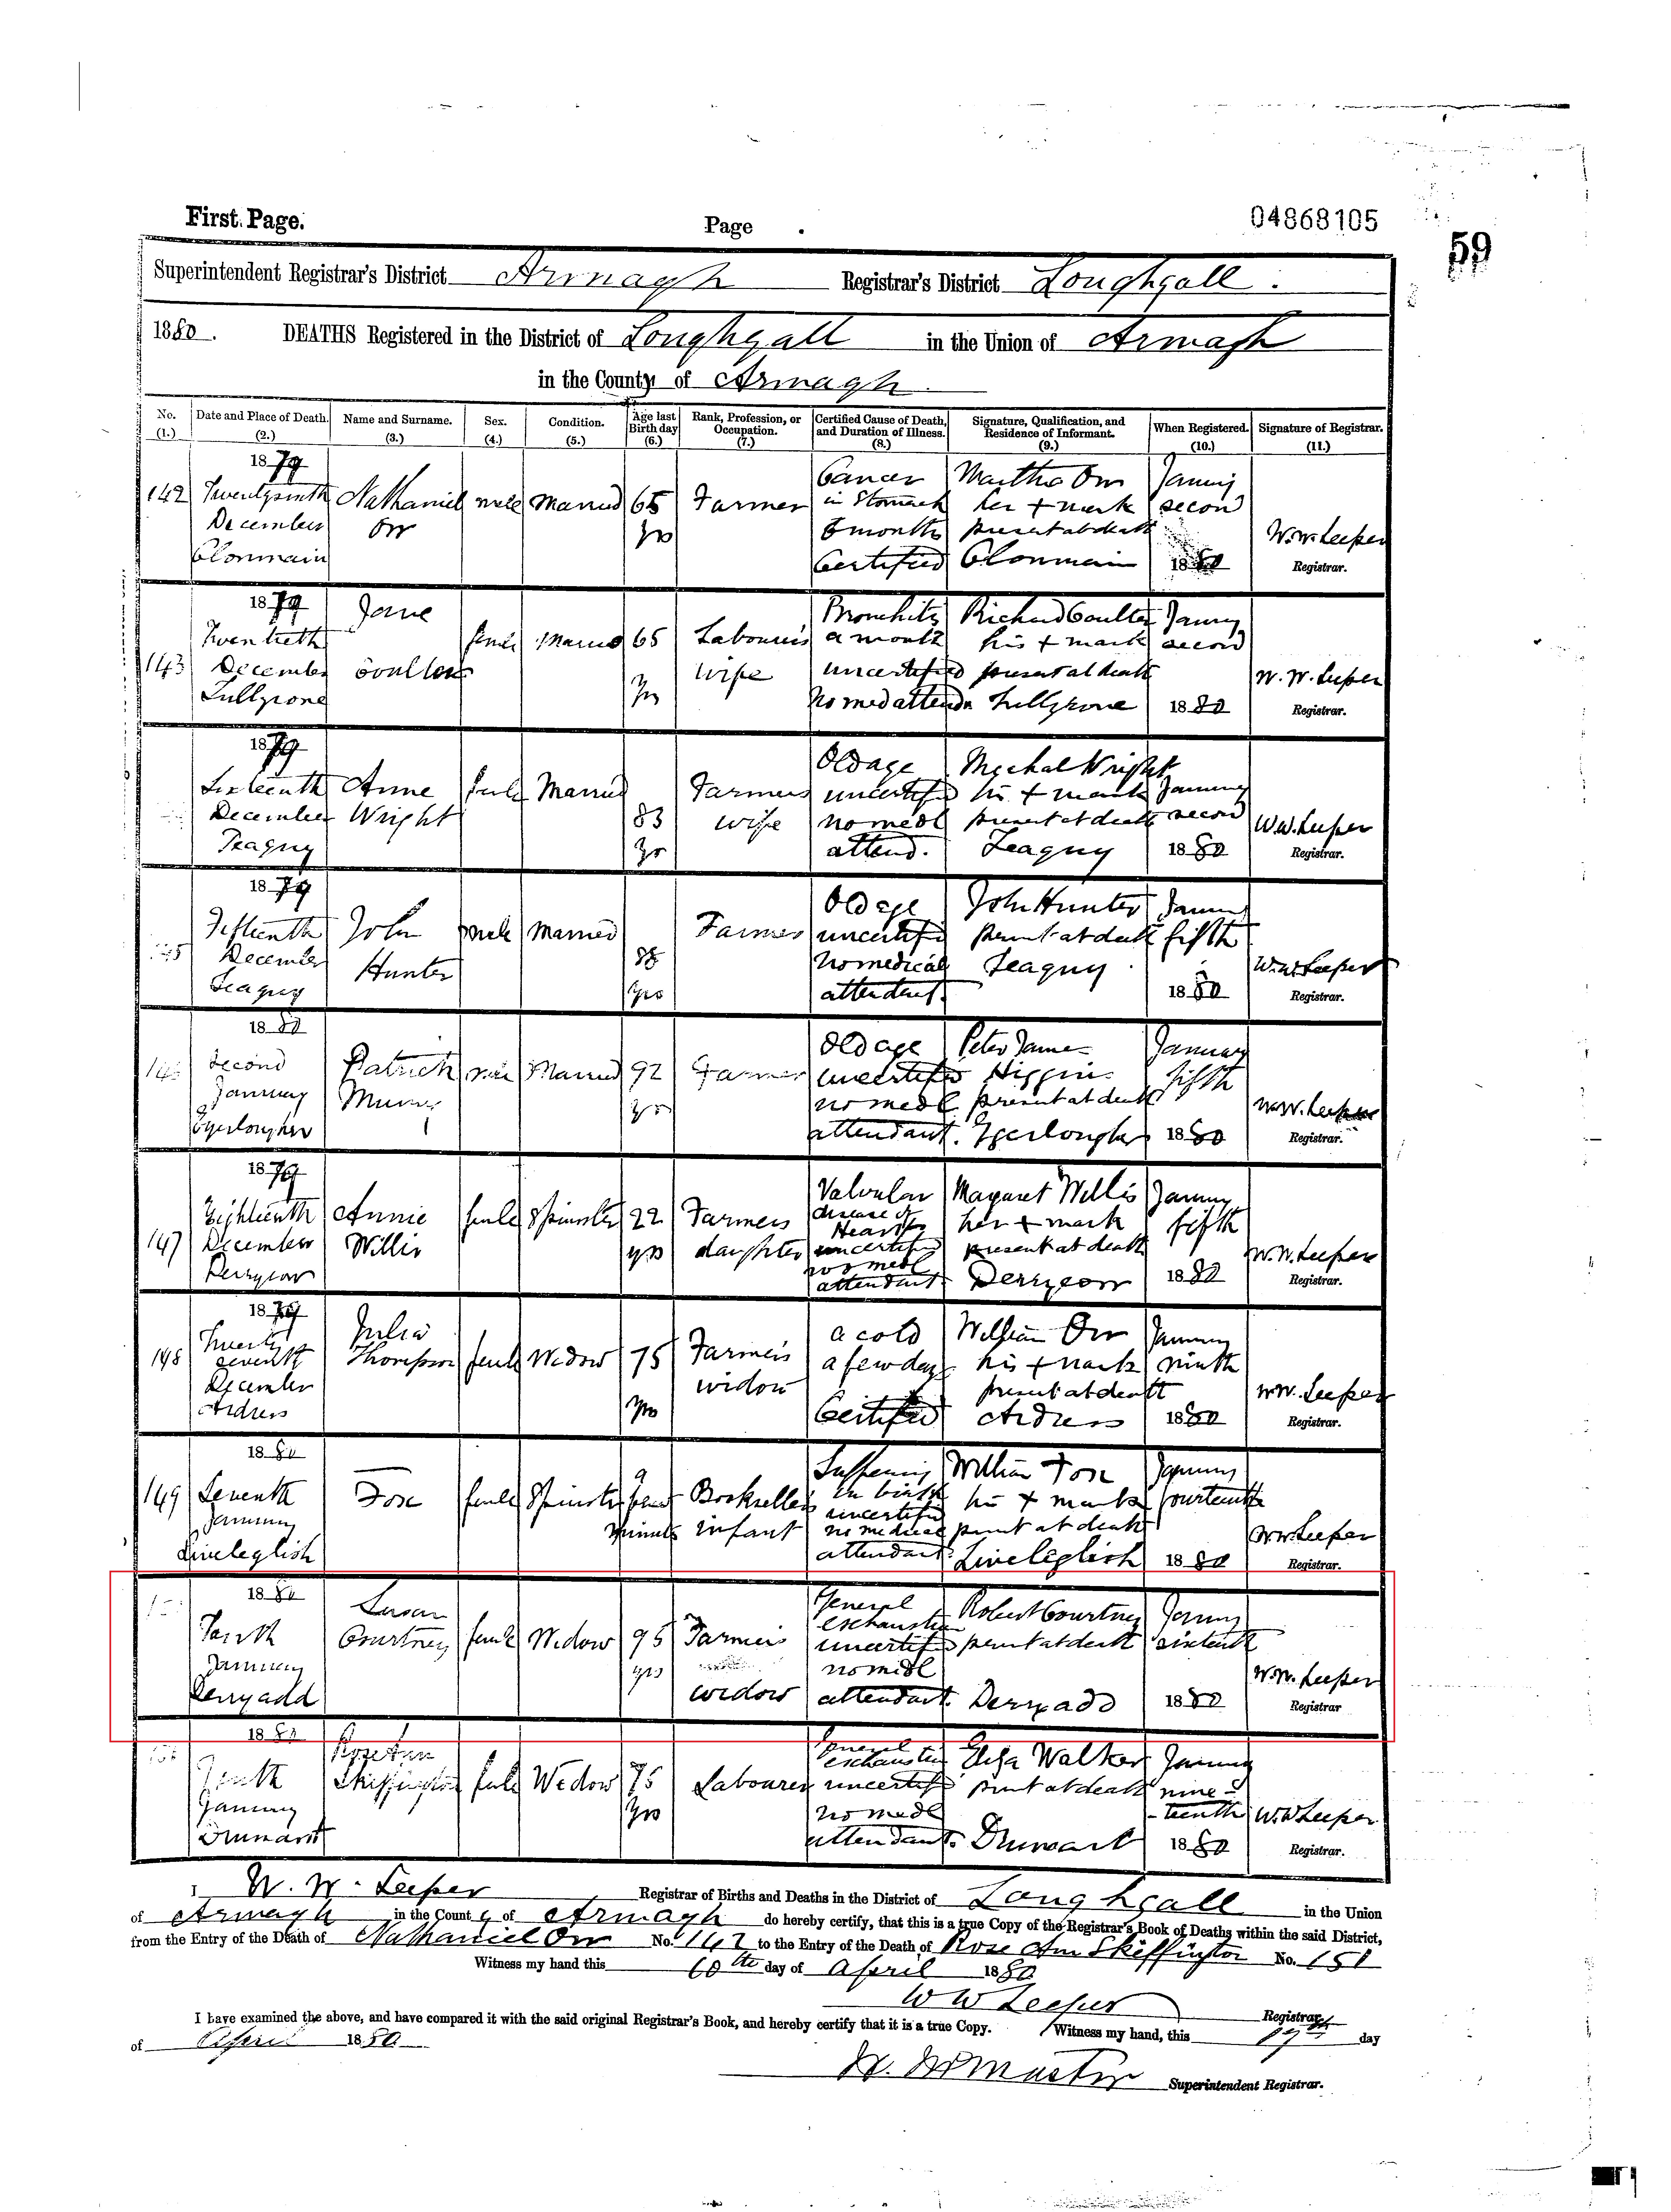 First Page.
Page
04868105
59
Superintendent Registrar's District Armagh Registrar's District Loughgall.
1880. DEATHS Registered in the District of Loughgall in the Union of Armagh
in the County of Armagh
No. Date and Place of Death. Name and Surname. Sex. Condition. Age last Birthday Rank, Profession, or Occupation. Certified Cause of Death, and Duration of Illness. Signature, Qualification, and Residence of Informant. When Registered. Signature of Registrar.
(1.) (2.) (3.) (4.) (5.) (6.) (7.) (8.) (9.) (10.) (11.)
1879 Cancer Martha Orr January
142 Nathaniel male Married 65 Farmer in Stomach her + mark second
December Orr yrs 6 months present at death W.W. Leeper
Clonmain Certified Clonmain 1880 Registrar.
1879 Jane Bronchitis Richard Coulter January
Twentieth female Married 65 Labourers a month his + mark second
143 December Coulter wife uncertified present at death W. W. Leeper
yrs no med attenda 1880 Registrar.
1879 Old age Michal Wright
Sixteenth Anne female Married Farmers uncertified his + mark January
December Wright 83 wife no medl present at death second W.W. Leeper
Teaguy yr attend. Teaguy 1880 Registrar.
1879 Old age John Hunter January
Fifteenth John male Married Farmer uncertified present at death fifth
December Hunter no medical Teaguy W.W. Leeper
Teaguy yrs attendant. 1880 Registrar.
1880 Old age Peter James January
Second Patrick male Married 92 Farmer uncertified Higgins fifth
January yrs no medl present at death W.W. Leeper
attendant. 1880 Registrar.
1879 Valvular Margaret Willis January
Eighteenth Annie female Spinster 22 Farmers disease of Heart her + mark fifth
147 December Willis yrs daughter uncertified present at death W.W. Leeper
no medl attendant. 1880 Registrar.
1879 Julia a cold William Orr January
148 Twenty seventh Thompson female Widow 75 Farmers a few days his + mark ninth
December widow present at death W.W. Leeper
Ardress yrs Certified Ardress 1880 Registrar.
1880 William Fox January
149 Seventh Fox female Spinster Booksellers in birth his + mark fourteenth
January minutes infant uncertified no medical present at death W W Leeper
Liveleglish attendant. Liveleglish 1880 Registrar.
1880 Susan General Robert Courtney January
Tenth Courtney female Widow 95 Farmers exhaustion uncertified present at death sixteenth
January yrs no medl W.W. Leeper
Derryadd widow attendant. Derryadd 1880 Registrar
1880 Rose Ann General Eliza Walker January
Tenth Skiffington female Widow 75 Labourer exhaustion uncertified present at death nine-
January yrs no medl -teenth W W Leeper
Drumart attendant. Drumart 1880 Registrar.
I W. W. Leeper Registrar of Births and Deaths in the District of Loughgall in the Union
of Armagh in the County of Armagh do hereby certify, that this is a true Copy of the Registrar's Book of Deaths within the said District,
from the Entry of the Death of Nathaniel Orr No. 142 to the Entry of the Death of Rose Ann Skiffington No. 151
Witness my hand this 10th day of April 1880
W W Leeper Registrar
I have examined the above, and have compared it with the said original Registrar's Book, and hereby certify that it is a true Copy. Witness my hand, this 19th day
of April 1880
Superintendent Registrar.